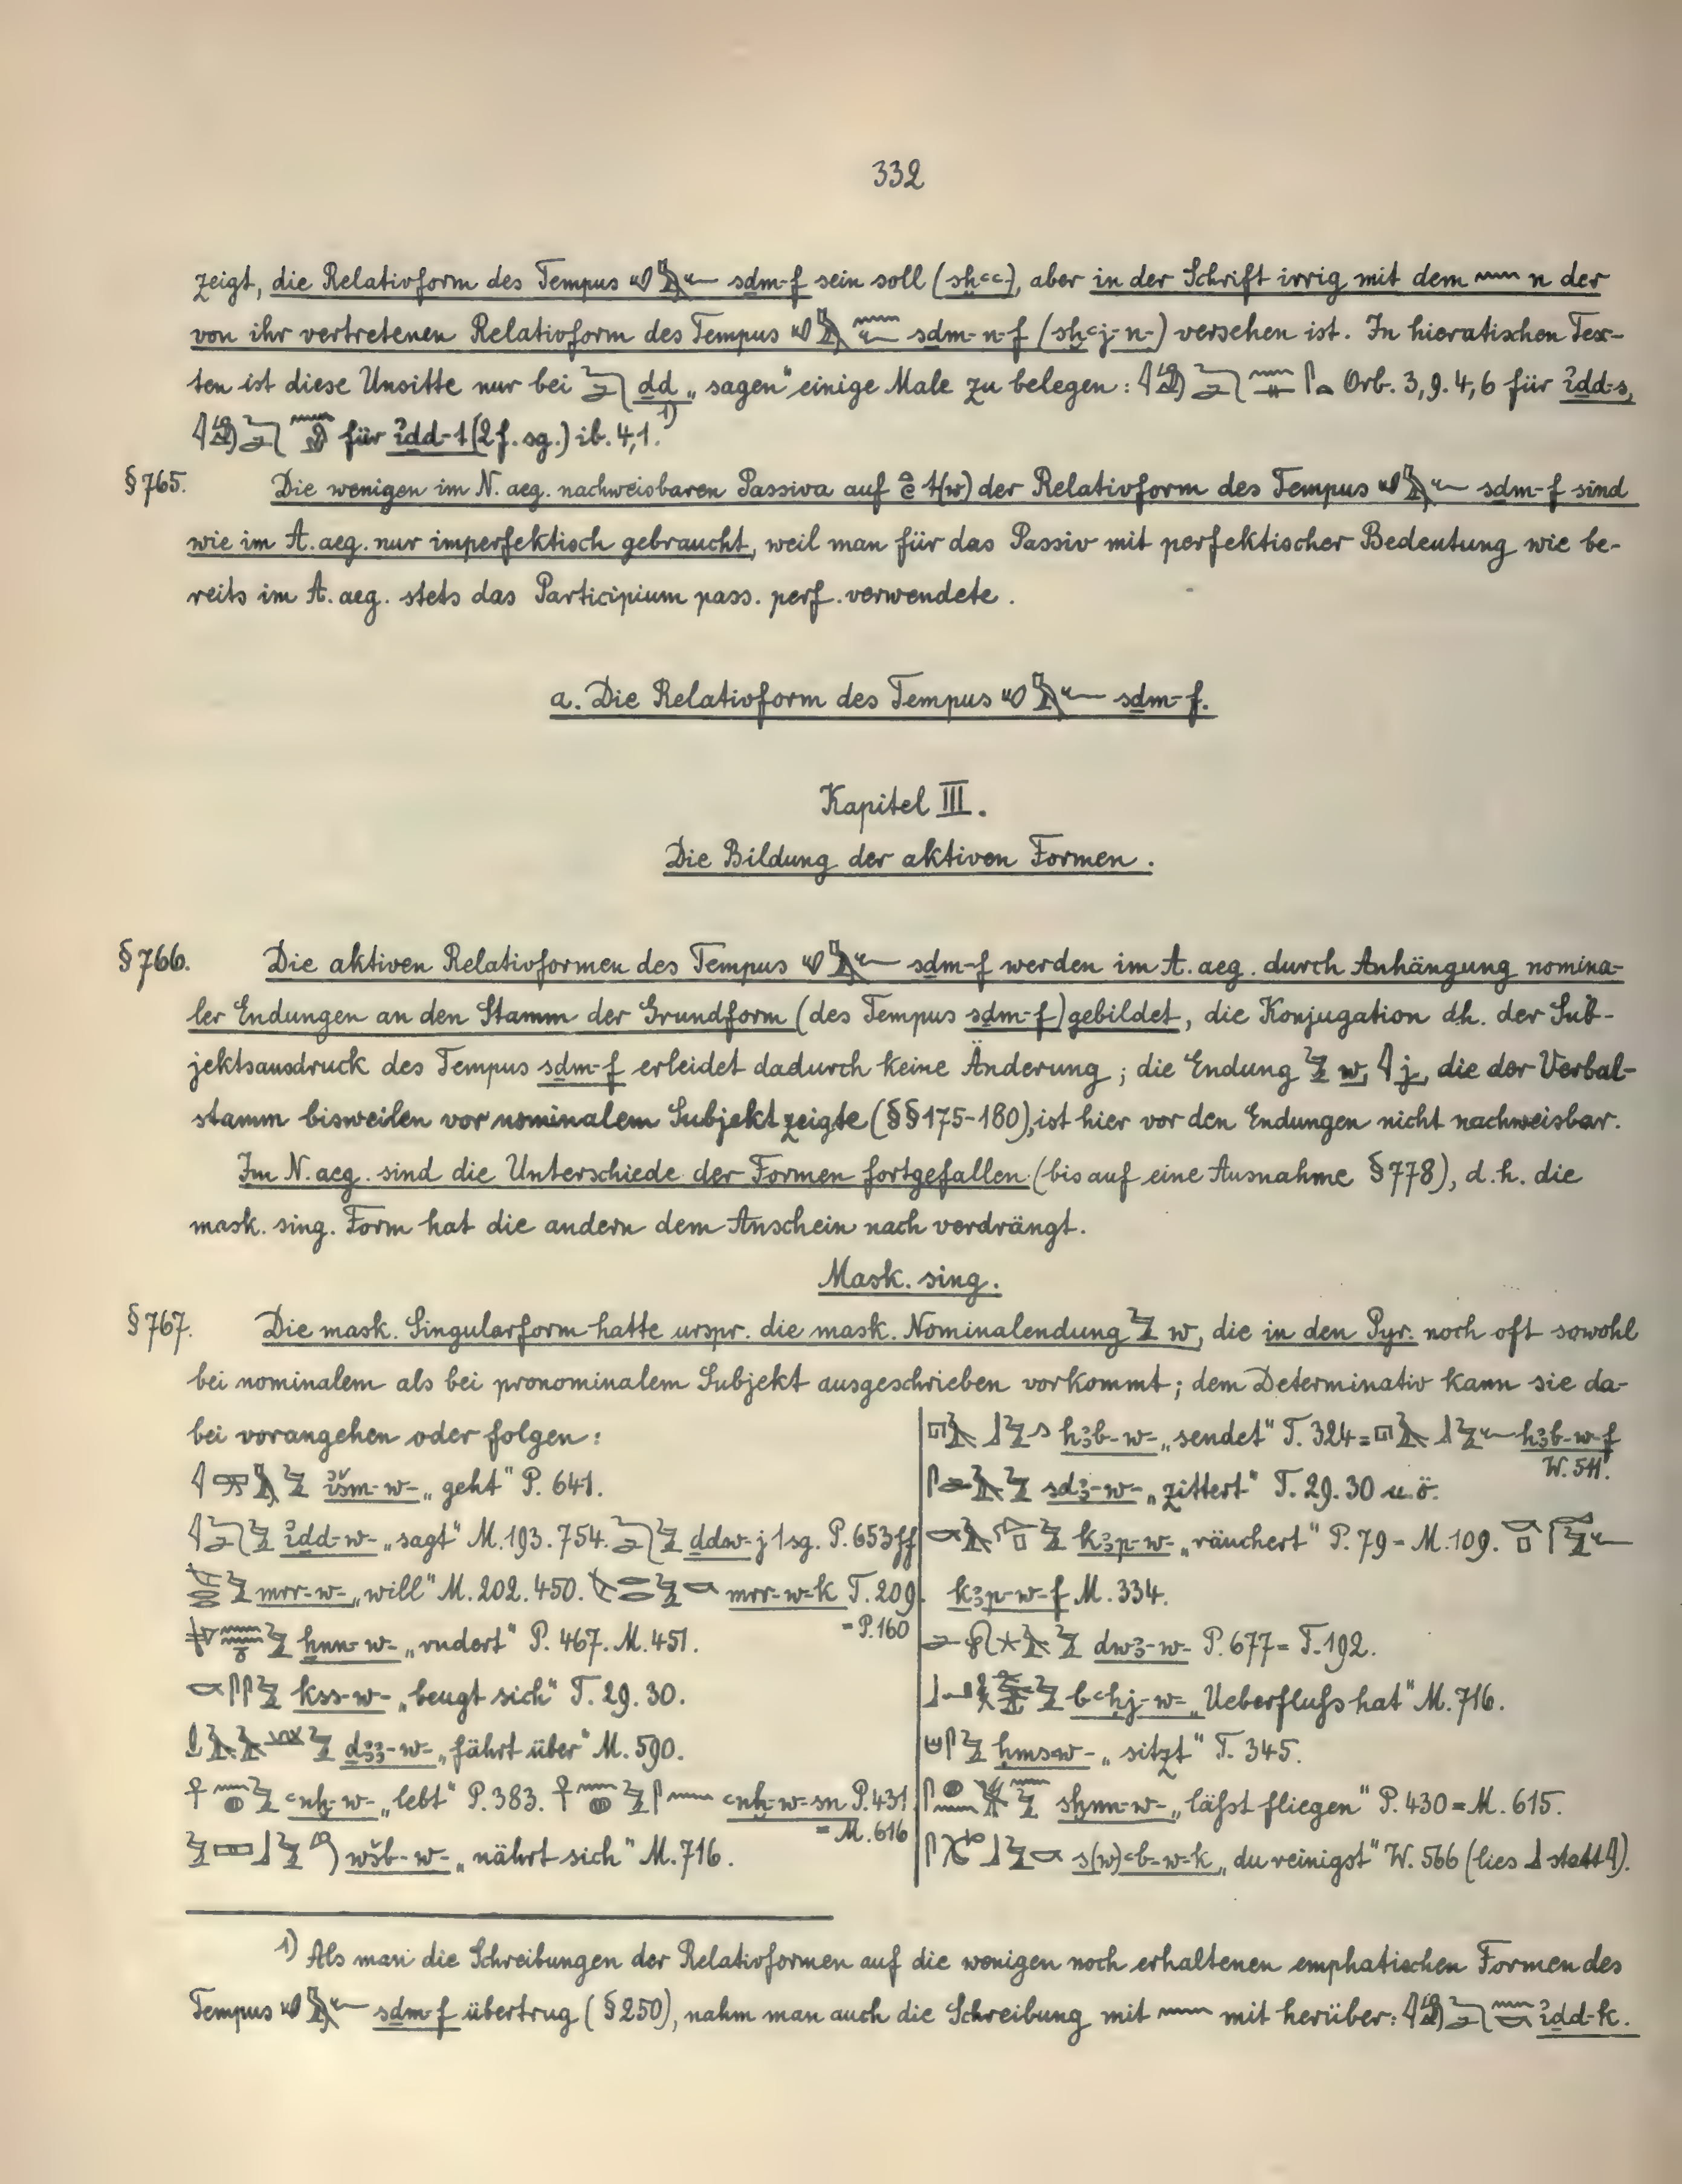 332
zeigt, die Relativform des Tempus 𓄔𓅓𓆑 sḏm-f sein soll (sḫꜥꜥ), aber in der Schrift irrig mit dem 𓈖 n der
von ihr vertretenen Relativform des Tempus 𓄔𓅓𓈖𓆑 sḏm-n-f (sḫꜥj-n-) versehen ist. In hieratischen Tex-
ten ist diese Unsitte nur bei ḏd „sagen“ einige Male zu belegen: Orb. 3,9. 4,6 für ỉḏd-s,
für ỉḏd-t (2 f. sg.) ib. 4,1. 1)
§ 765. Die wenigen im N. aeg. nachweisbaren Passiva auf t(w) der Relativform des Tempus 𓄔𓅓𓆑 sḏm-f sind
wie im A. aeg. nur imperfektisch gebraucht, weil man für das Passiv mit perfektischer Bedeutung wie be-
reits im A. aeg. stets das Participium pass. perf. verwendete.
a. Die Relativform des Tempus 𓄔𓅓𓆑 sḏm-f.
Kapitel III.
Die Bildung der aktiven Formen.
§ 766. Die aktiven Relativformen des Tempus 𓄔𓅓𓆑 sḏm-f werden im A. aeg. durch Anhängung nomina-
ler Endungen an den Stamm der Grundform (des Tempus sḏm-f) gebildet, die Konjugation dh. der Sub-
jektsausdruck des Tempus sḏm-f erleidet dadurch keine Änderung; die Endung 𓅱 w, 𓇋 j, die der Verbal-
stamm bisweilen vor nominalem Subjekt zeigte (§§ 175-180), ist hier vor den Endungen nicht nachweisbar.
Im N. aeg. sind die Unterschiede der Formen fortgefallen (bis auf eine Ausnahme § 778), d. h. die
mask. sing. Form hat die andern dem Anschein nach verdrängt.
Mask. sing.
§ 767. Die mask. Singularform hatte urspr. die mask. Nominalendung 𓅱 w, die in den Pyr. noch oft sowohl
bei nominalem als bei pronominalem Subjekt ausgeschrieben vorkommt; dem Determinativ kann sie da-
bei vorangehen oder folgen:
ỉšm-w- „geht“ P. 641.
ỉḏd-w- „sagt“ M. 193. 754. ḏdw-j 1 sg. P. 653 ff
mrr-w- „will“ M. 202. 450. mrr-w-k T. 209.
= P. 160
ẖnn-w- „rudert“ P. 467. M. 451.
kss-w- „beugt sich“ T. 29. 30.
ḏꜣꜣ-w- „fährt über“ M. 590.
ꜥnḫ-w- „lebt“ P. 383. ꜥnḫ-w-sn P. 431
= M. 616
wšb-w- „nährt sich“ M. 716.
hꜣb-w- „sendet“ T. 324 = hꜣb-w-f
W. 511.
sdꜣ-w- „zittert“ T. 29. 30 u. ö.
kꜣp-w- „räuchert“ P. 79 = M. 109.
kꜣp-w-f M. 334.
dwꜣ-w- P. 677 = T. 192.
bꜥḥj-w- „Ueberfluſs hat“ M. 716.
ḥmsw- „sitzt“ T. 345.
sḫnn-w- „läſst fliegen“ P. 430 = M. 615.
s(w)ꜥb-w-k „du reinigst“ W. 566 (lies 𓃀 statt 𓇋).
1) Als man die Schreibungen der Relativformen auf die wenigen noch erhaltenen emphatischen Formen des
Tempus 𓄔𓅓𓆑 sḏm-f übertrug (§ 250), nahm man auch die Schreibung mit 𓈖 mit herüber: ỉḏd-k.